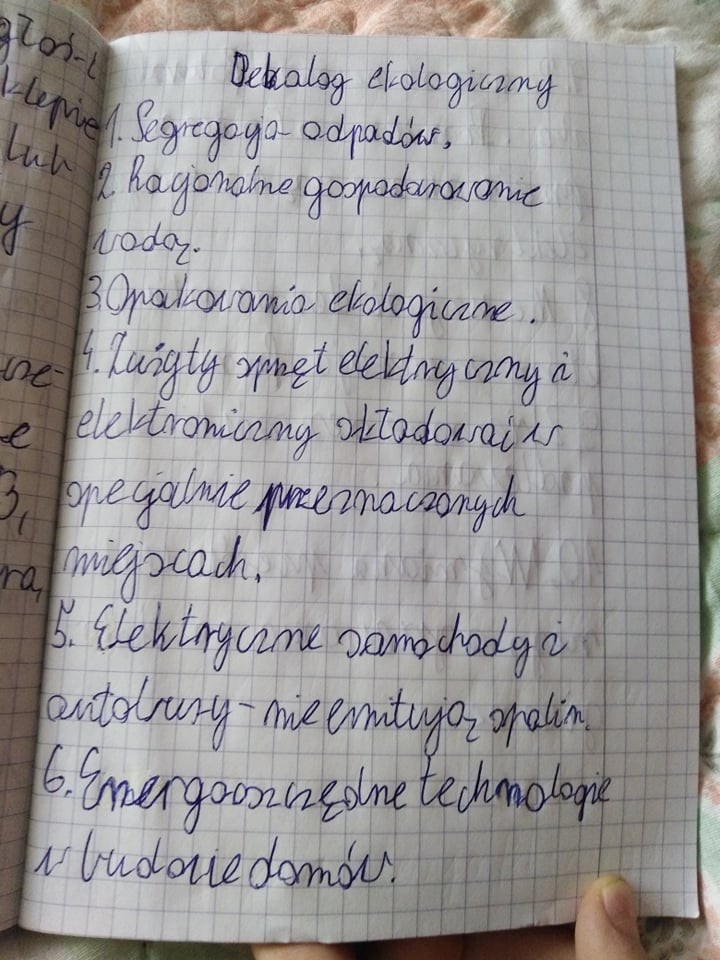 głoś-ć
klepie
lub
y
Dekalog ekologiczny
1. Segregacja odpadów.
2. Racjonalne gospodarowanie
wodą.
3. Opakowania ekologiczne.
4. Zużyty sprzęt elektryczny i
elektroniczny składować w
specjalnie przeznaczonych
miejscach.
5. Elektryczne samochody i
autobusy - nie emitują spalin.
6. Energooszczędne technologie
w budowie domów.